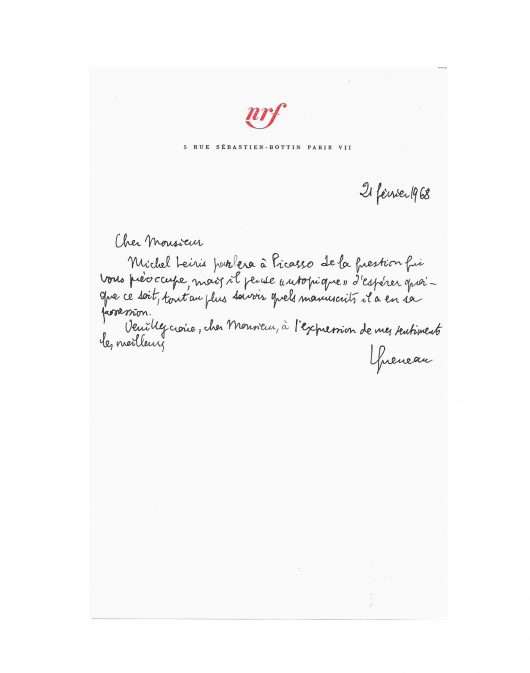 nrf
5 RUE SÉBASTIEN-BOTTIN PARIS VII
21 février 1968
Cher Monsieur
Michel Leiris parlera à Picasso de la question qui
vous préoccupe, mais il pense "utopique" d'espérer quoi-
que ce soit, tout au plus savoir quels manuscrits il a en sa
possession.
Veuillez croire, cher Monsieur, à l'expression de mes sentiments
les meilleurs
Queneau